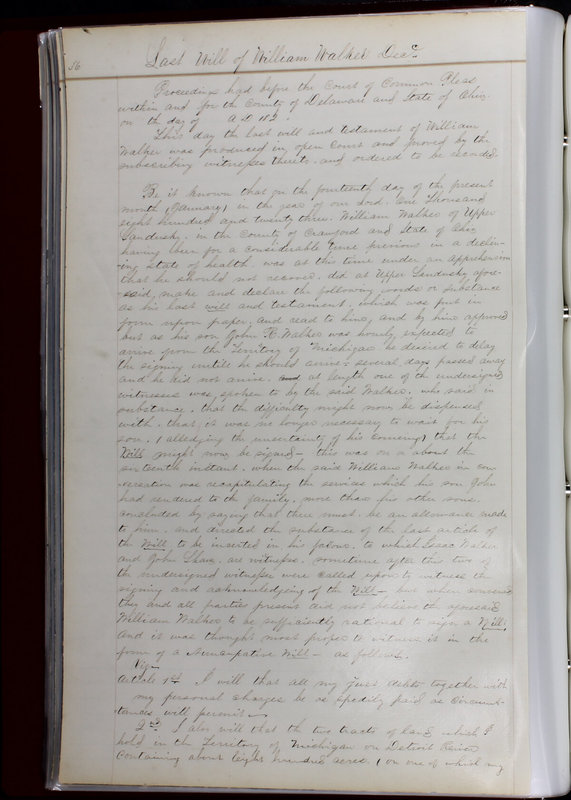 56
Last Will of William Walker Decd
Proceedings had before the Court of Common Pleas
within and for the County of Delaware and State of Ohio
on the day of A D 182 .
This day the last will and testament of William
Walker was produced in open Court and proved by the
subscribing witnesses thereto, and ordered to be recorded.
Be it known that on the fourteenth day of the present
month (January) in the year of our Lord, One Thousand
eight hundred and twenty three. William Walker of Upper
Sandusky, in the County of Crawford and State of Ohio
having been for a considerable time previous in a declin-
ing state of health, was at this time under an apprehension
that he should not recover, did at Upper Sandusky afore-
said, make and declare the following words or substance
as his last will and testament, which was put in
form upon paper, and read to him, and by him approved
but as his son John R. Walker was hourly expected to
arrive from the Territory of Michigan he desired to delay
the signing untill he should arrive, several days passed away
and he did not arrive, at length one of the undersigned
witnesses was spoken to by the said Walker, who said in
substance, that the difficulty might now be dispensed
with, that it was no longer necessary to wait for his
son, (alledging the uncertainty of his coming) that the
Will might now be signed - this was on or about the
sixteenth instant, when the said William Walker in con-
versation was recapitulating the services which his son John
had rendered to the family, more than his other sons,
concluded by saying that there must be an allowance made
to him, and directed the substance of the last article of
the Will to be inserted in his favour, to which Isaac Walker
and John Shaw, as witnesses, sometime after this two of
the undersigned witnesses were called upon to witness the
signing and acknowledgeing of the Will - but when convened
they and all parties present did not believe the aforesaid
William Walker to be sufficiently rational to sign a Will;
and it was thought most proper to witness it in the
form of a Nuncupative Will - as follows.
Viz-
Article 1st I will that all my just debts together with
my personal charges be as spedily paid as circums-
tances will permit -
2nd I also will that the two tracts of land which I
hold in the Territory of Michigan on Detroit River
Containing about Eight hundred acres, (on one of which my